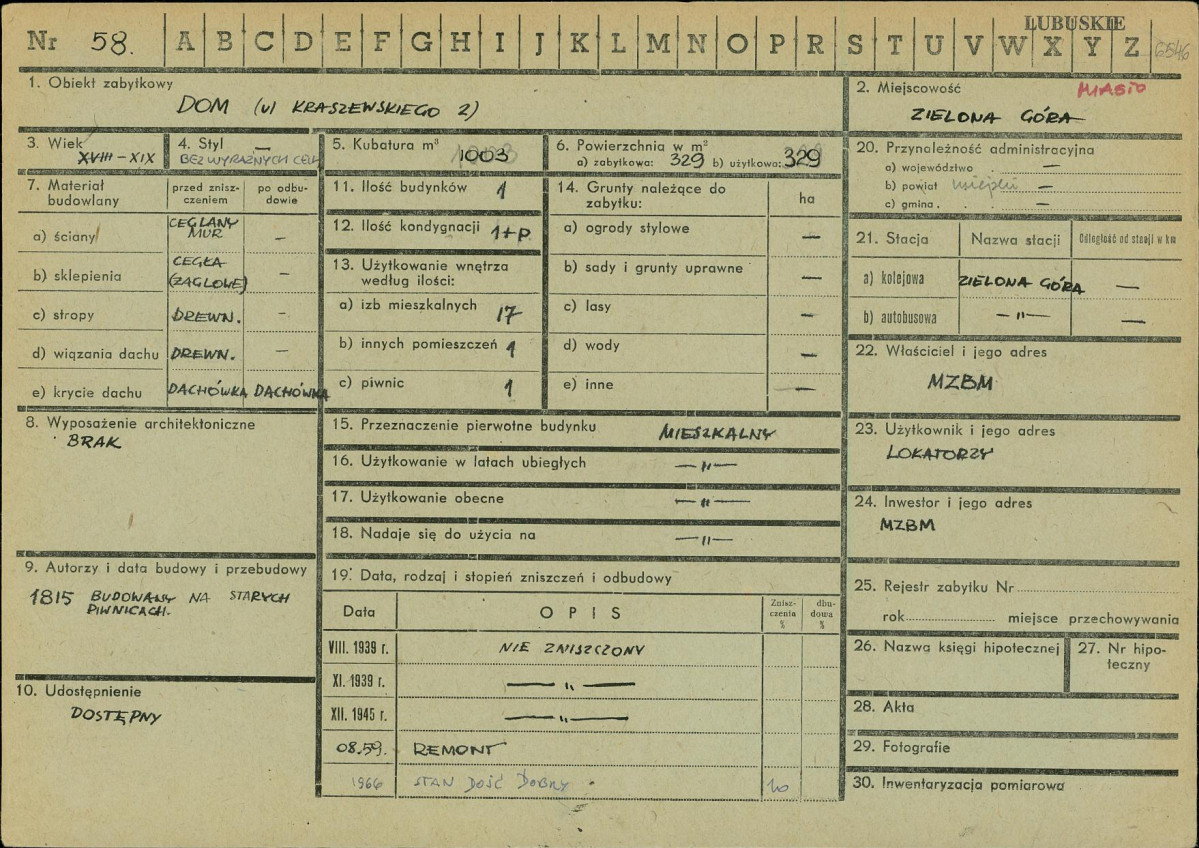 LUBUSKIE
Nr 58. A B C D E F G H I J K L M N O P R S T U V W X Y Z 6546
1. Obiekt zabytkowy
DOM (ul KRASZEWSKIEGO 2)
2. Miejscowość MIASTO
ZIELONA GÓRA
3. Wiek
XVIII-XIX
4. Styl —
BEZ WYRAŹNYCH CECH
5. Kubatura m³
1003
6. Powierzchnia w m²
a) zabytkowa: 329 b) użytkowa: 329
20. Przynoleżność administracyjna
a) województwo —
b) powiat —
c) gmina . —
7. Materiał budowlany
przed znisz-
czeniem
po odbu-
dowie
a) ściany CEGLANY MUR —
b) sklepienia CEGŁA (ŻAGLOWE) —
c) stropy DREWN. —
d) wiązania dachu DREWN. —
e) krycie dachu DACHÓWKA DACHÓWKA
11. Ilość budynków 1
12. Ilość kondygnacji 1+p.
13. Użytkowanie wnętrza
według ilości:
a) izb mieszkalnych 17
b) innych pomieszczeń 1
c) piwnic 1
14. Grunty należące do
zabytku:
ha
a) ogrody stylowe —
b) sady i grunty uprawne —
c) lasy —
d) wody —
e) inne —
21. Stacja Nazwa stacji Odległość od stacji w km
a) kolejowa ZIELONA GÓRA —
b) autobusowa —"— —
22. Właściciel i jego adres
MZBM
8. Wyposażenie architektoniczne
BRAK
15. Przeznaczenie pierwotne budynku MIESZKALNY
16. Użytkowanie w latach ubiegłych —"—
17. Użytkowanie obecne —"—
18. Nadaje się do użycia na —"—
23. Użytkownik i jego adres
LOKATORZY
24. Inwestor i jego adres
MZBM
9. Autorzy i data budowy i przebudowy
1815 BUDOWANY NA STARYCH
PIWNICACH.
19. Data, rodzaj i stopień zniszczeń i odbudowy
Data OPIS
Znisz-
czenia
%
dbu-
dowa
%
VIII. 1939 r. NIE ZNISZCZONY
XI. 1939 r. —"—
XII. 1945 r. —"—
08.59. REMONT
1966 STAN DOŚĆ DOBRY
25. Rejestr zabytku Nr
rok miejsce przechowywania
26. Nazwa księgi hipotecznej
27. Nr hipo-
teczny
10. Udostępnienie
DOSTĘPNY
28. Akta
29. Fotografie
30. Inwentaryzacja pomiarowa